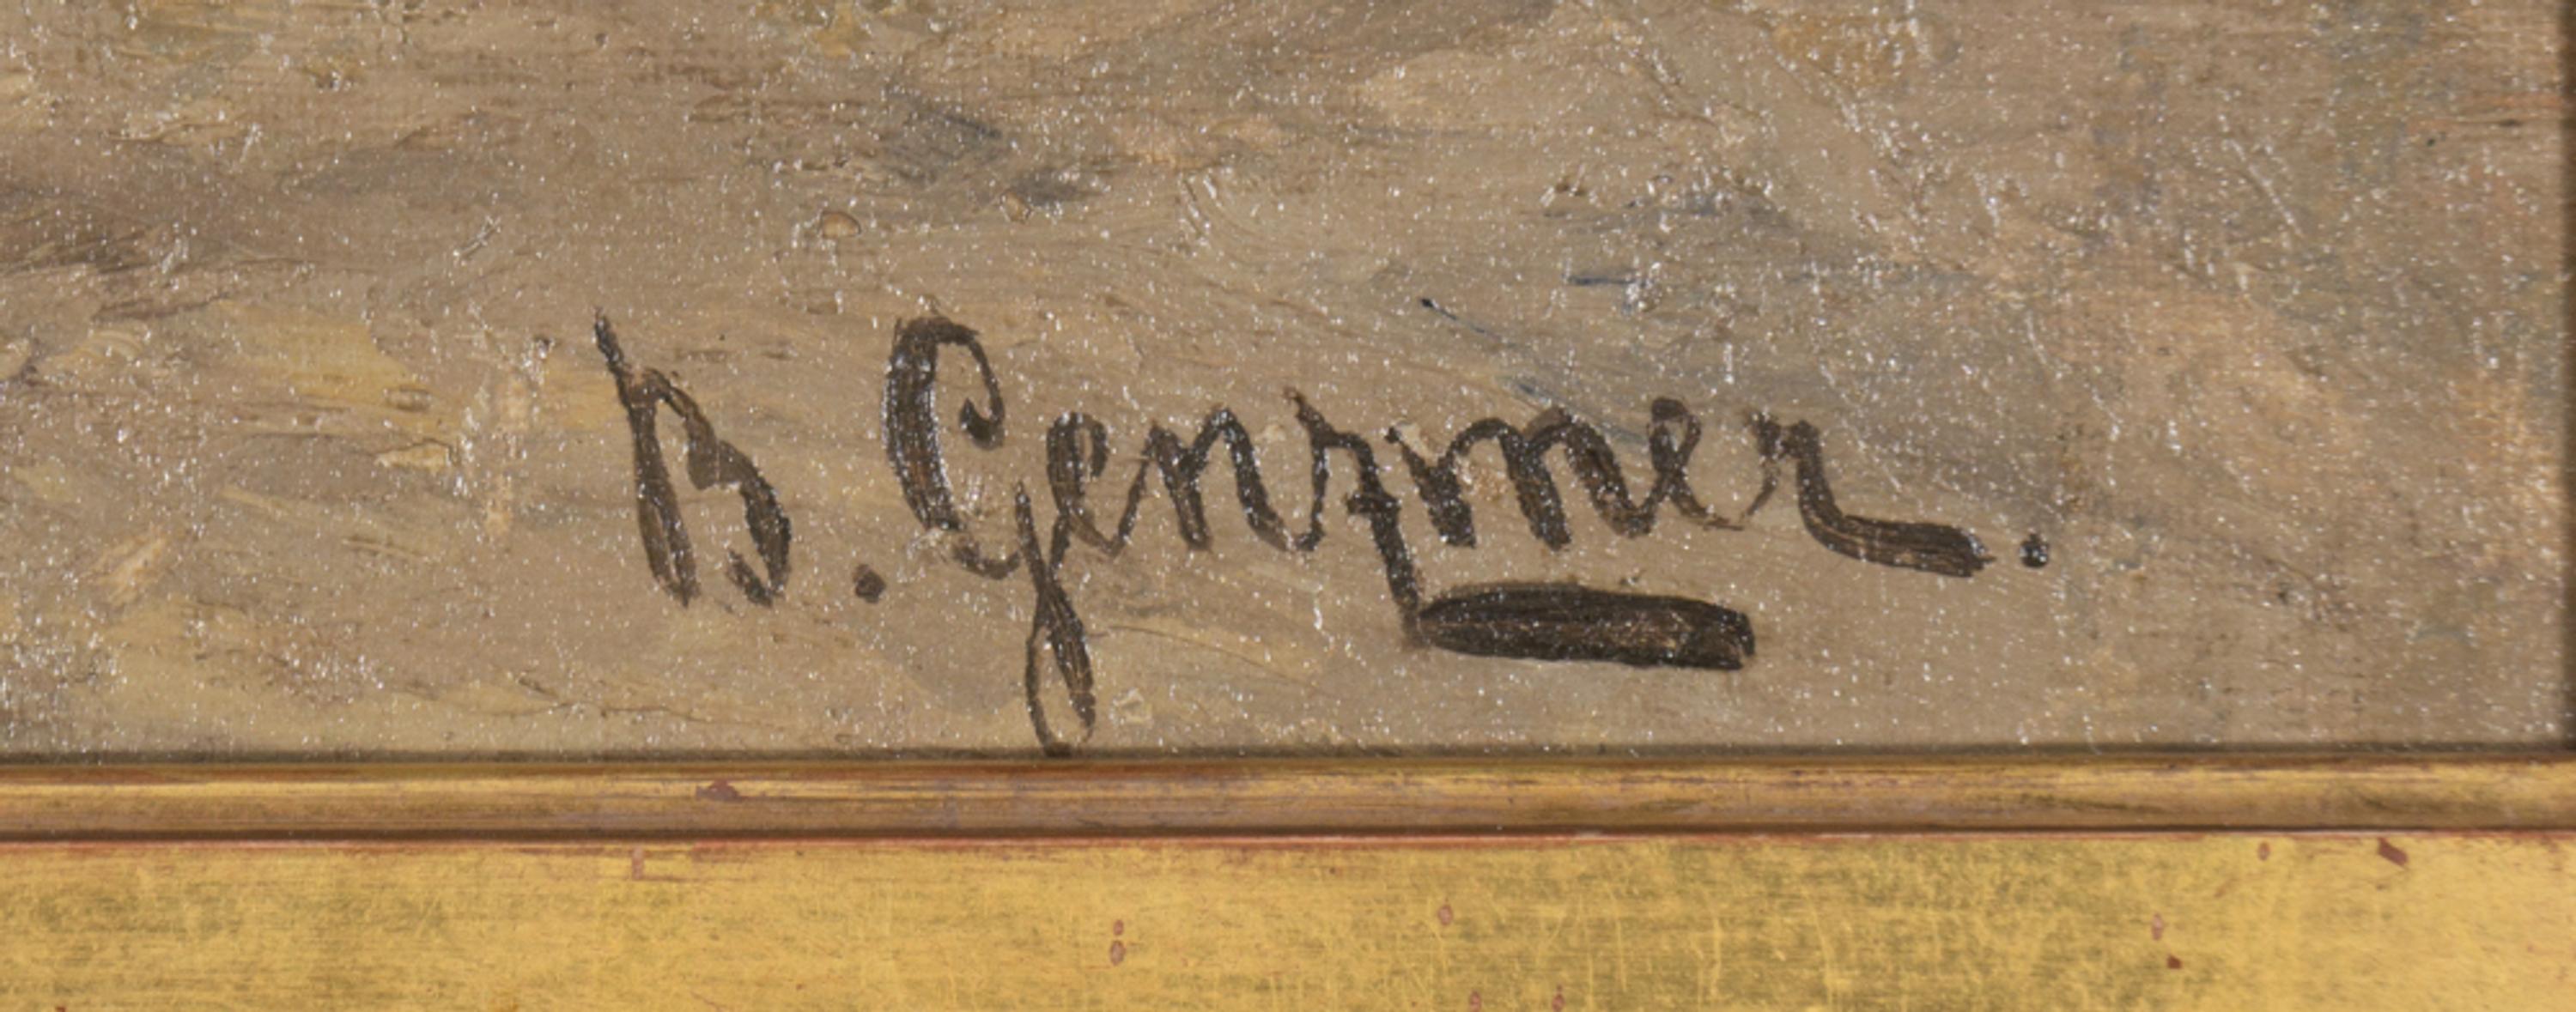 B. Genzmer.